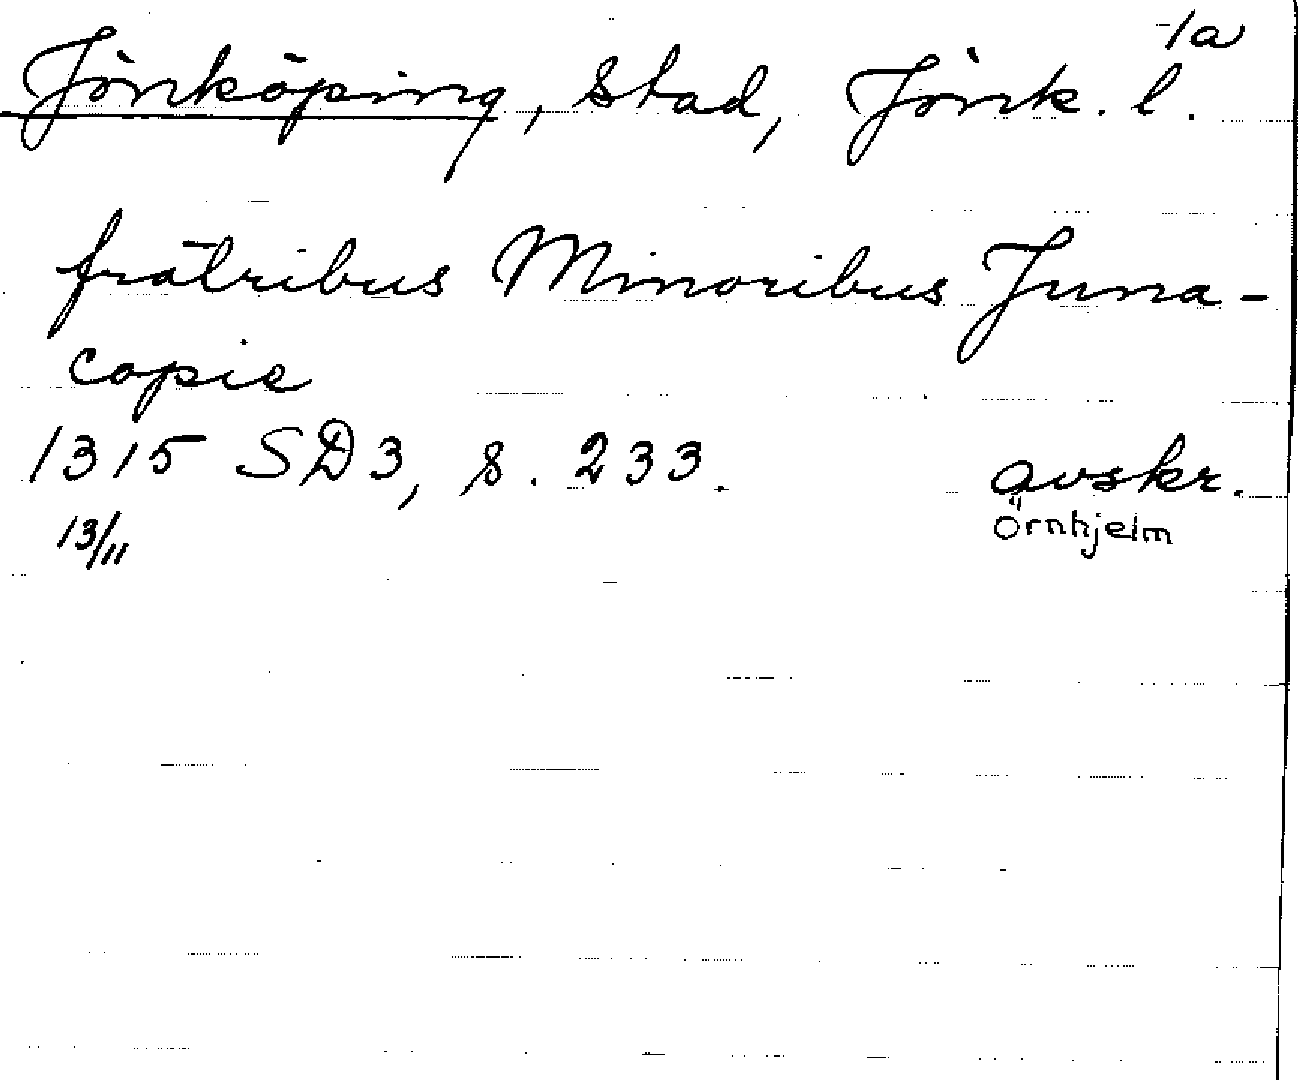 1a
Jönköping, stad, Jönk. l.
fratribus Minoribus Juna-
copie
1315 SD3, s. 233. avskr.
13/11 Örnhjelm